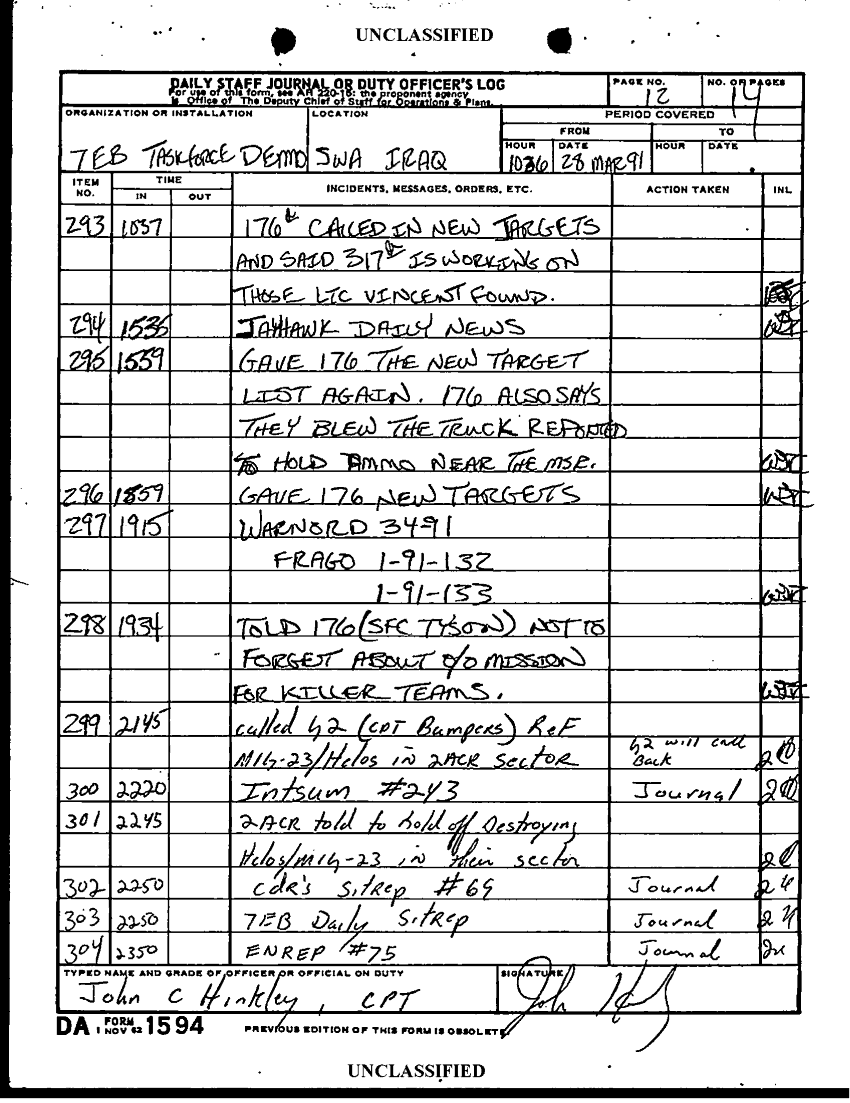 UNCLASSIFIED
DAILY STAFF JOURNAL OR DUTY OFFICER'S LOG
For use of this form, see AR 220-15; the proponent agency
is Office of The Deputy Chief of Staff for Operations & Plans.
PAGE NO.
12
NO. OF PAGES
14
ORGANIZATION OR INSTALLATION
7EB TASKFORCE DEMO
LOCATION
SWA IRAQ
PERIOD COVERED
FROM
TO
HOUR
1036
DATE
28 MAR 91
HOUR
DATE
ITEM NO.
TIME
IN
OUT
INCIDENTS, MESSAGES, ORDERS, ETC.
ACTION TAKEN
INL
293 1037 176th CALLED IN NEW TARGETS
AND SAID 317th IS WORKING ON
THOSE LTC VINCENT FOUND.
294 1536 JAYHAWK DAILY NEWS
295 1559 GAVE 176 THE NEW TARGET
LIST AGAIN. 176 ALSO SAYS
THEY BLEW THE TRUCK REPORTED
TO HOLD AMMO NEAR THE MSR.
296 1859 GAVE 176 NEW TARGETS
297 1915 WARNORD 34-91
FRAGO 1-91-132
1-91-133
298 1934 TOLD 176 (SFC TYSON) NOT TO
FORGET ABOUT O/O MISSION
FOR KILLER TEAMS.
299 2145 called G2 (CPT Bumpers) Ref
MIG-23/Helos in 2ACR sector G2 will call Back
300 2220 Intsum #243 Journal
301 2245 2ACR told to hold off Destroying
Helos/MIG-23 in their sector
302 2250 CdR's SitRep #69 Journal
303 2250 7EB Daily SitRep Journal
304 2350 ENREP #75 Journal
TYPED NAME AND GRADE OF OFFICER OR OFFICIAL ON DUTY
John C Hinkley, CPT
SIGNATURE
DA FORM 1 NOV 62 1594
PREVIOUS EDITION OF THIS FORM IS OBSOLETE.
UNCLASSIFIED